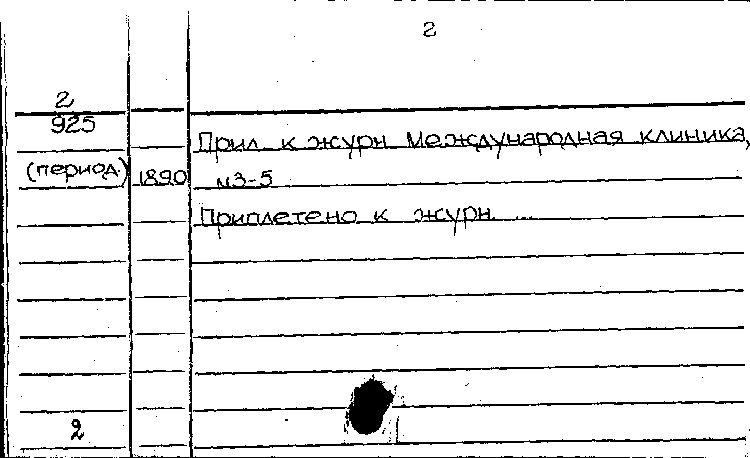 2
2
925
Прил к журн Международная клиника,
(период.) 1890 №3-5
Приплетено к журн. ...
2